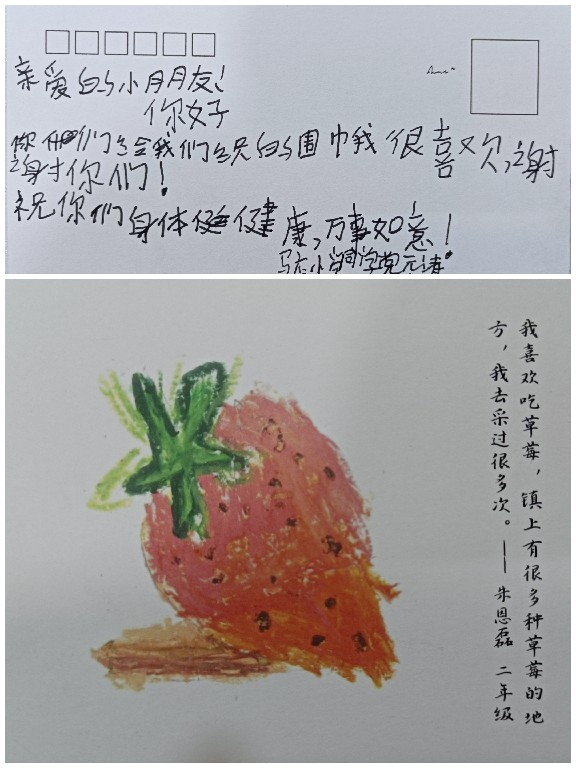 亲爱的小月月友！
你好
你们们给我们织的围巾我很喜欢,谢
谢你们！
祝你们身体健健康,万事如意！
我喜欢吃草莓，镇上有很多种草莓的地
方，我去采过很多次。——朱恩磊 二年级